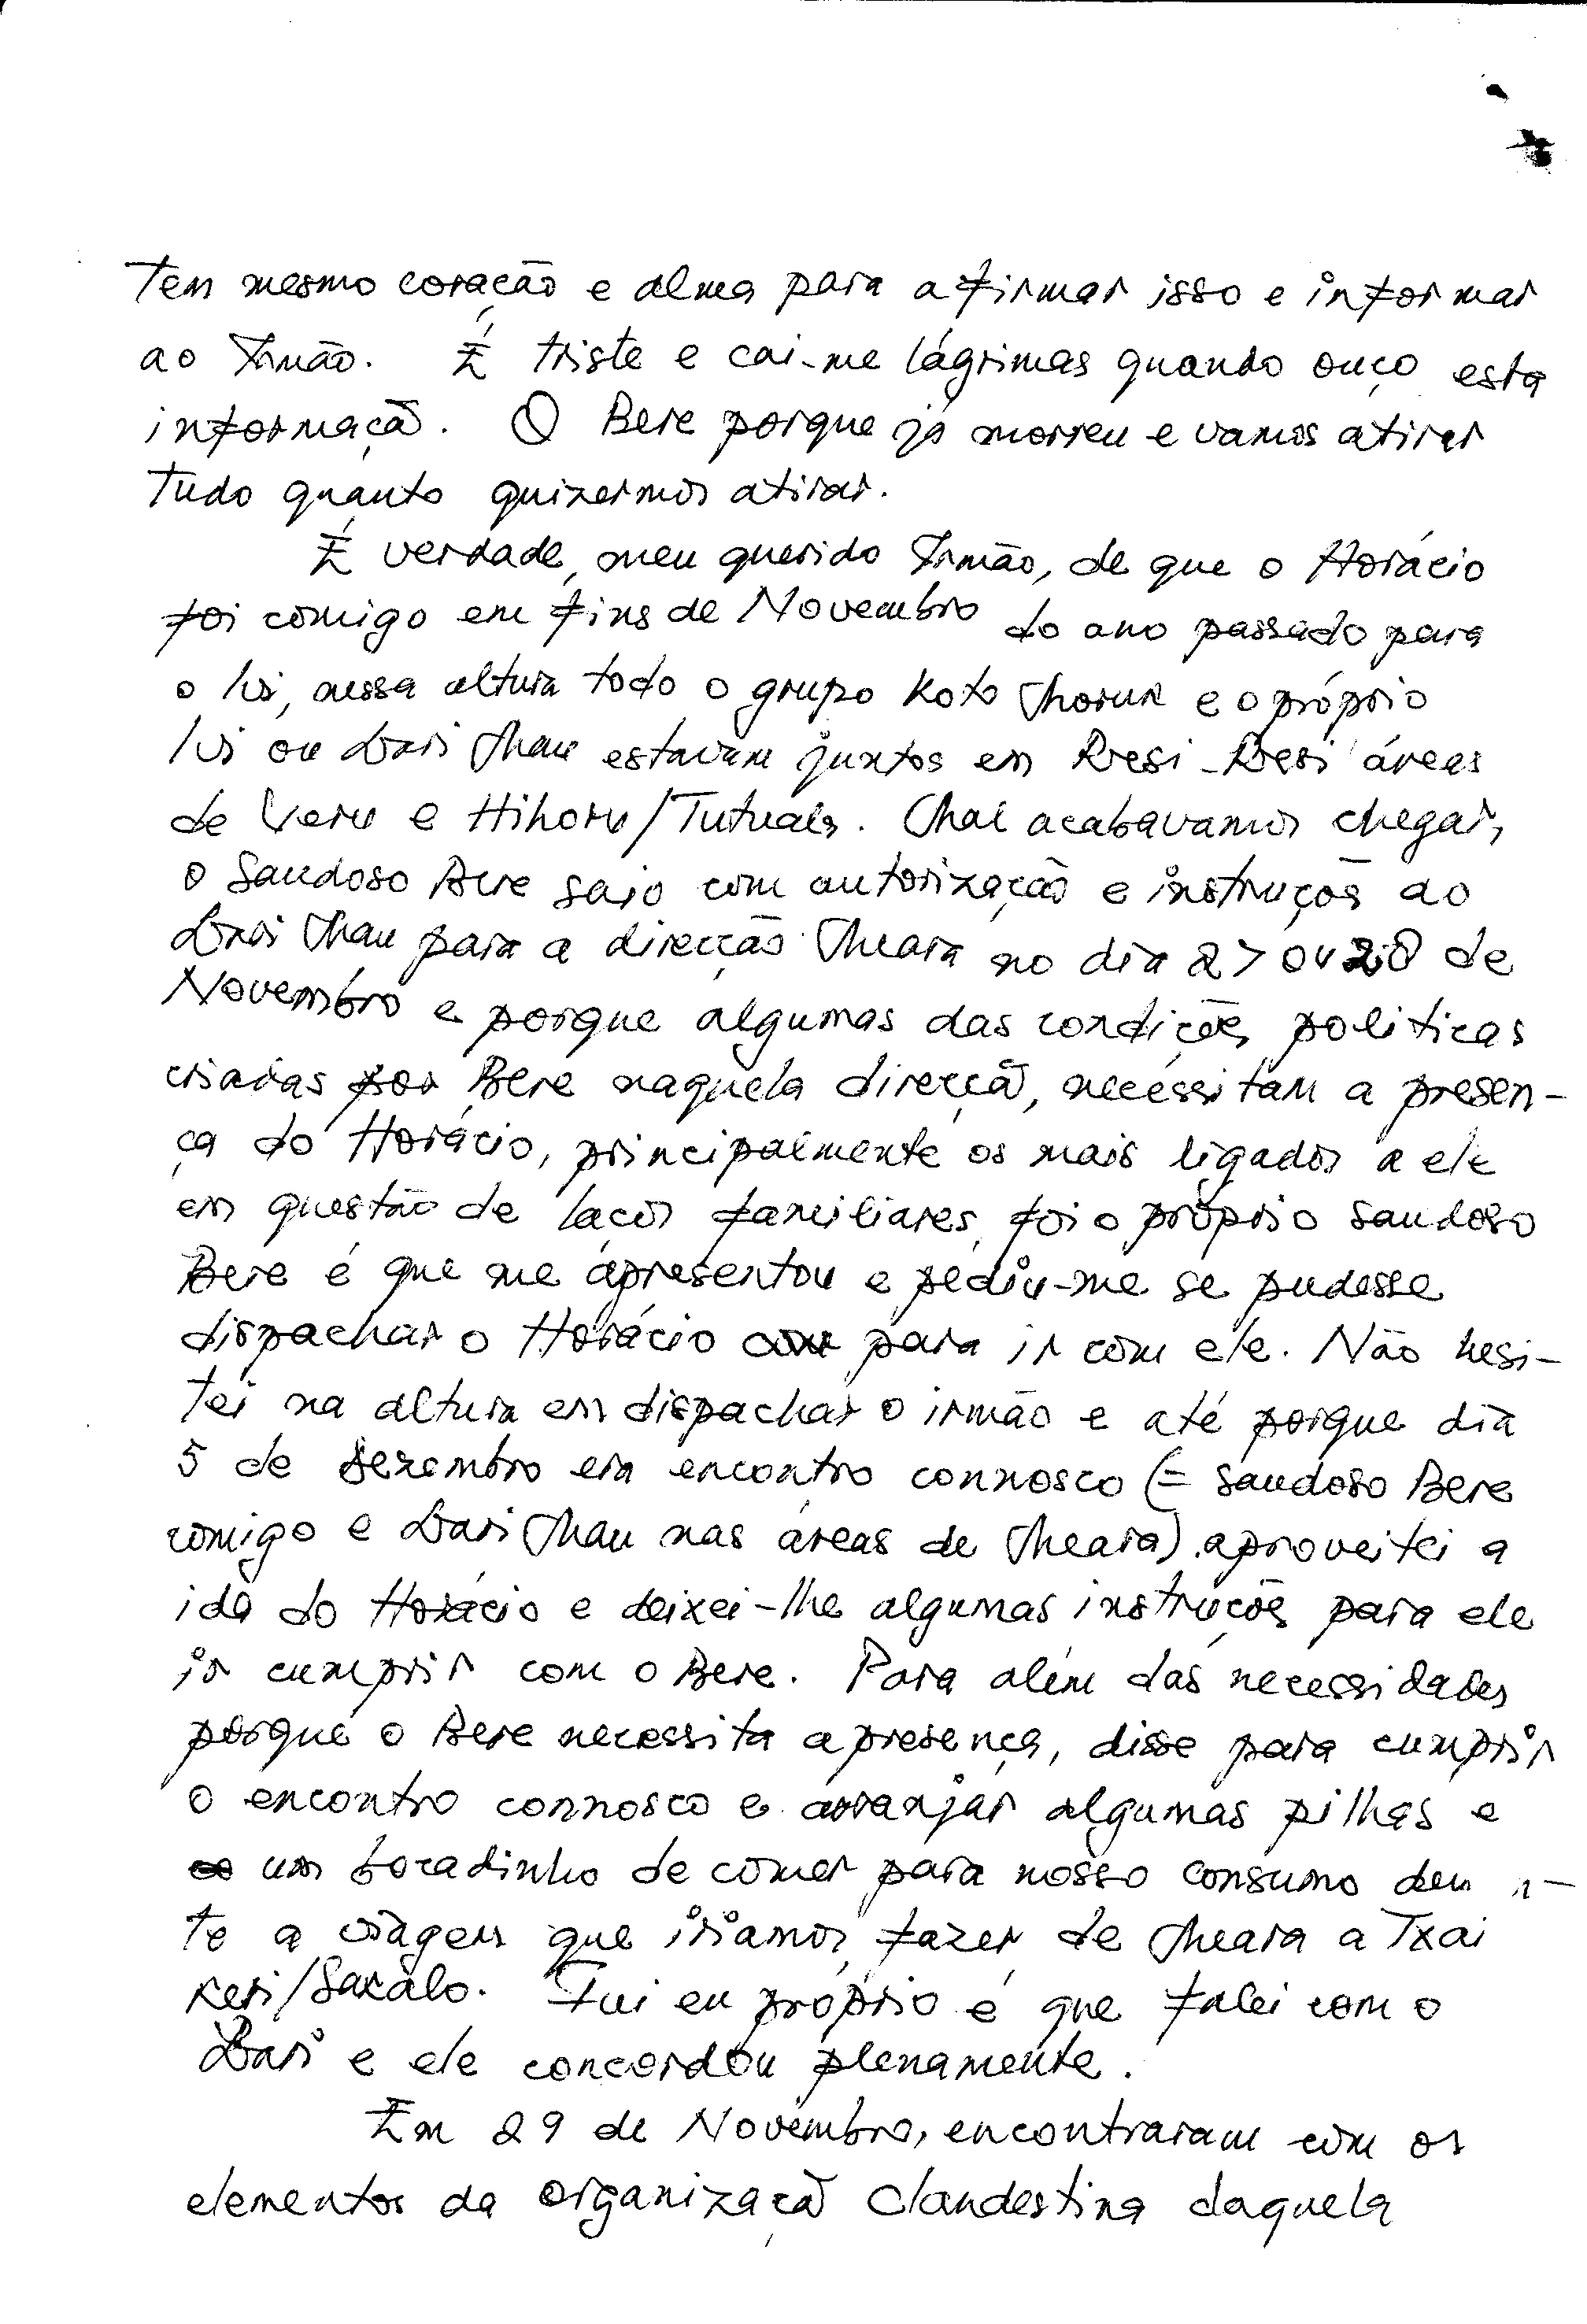 tem mesmo coração e alma para afirmar isso e informar
ao Irmão. É triste e cai-me lágrimas quando ouço esta
informação. O Bere porque já morreu e vamos atirar
tudo quanto quizermos atirar.
É verdade, meu querido Irmão, de que o Horácio
foi comigo em fins de Novembro do ano passado para
o , nessa altura todo o grupo Koto e o próprio
ou estavam juntos em áreas
de Vero e Hihoru/Tutuala. Mal acabavamos chegar,
o Saudoso Bere saio com autorização e instruções ao
para a direcção Meara no dia 27 ou 28 de
Novembro e porque algumas das condições politicas
criadas por Bere naquela direcção, necessitam a presen-
ça do Horácio, principalmente os mais ligados a ele
em questão de laços familiares, foi o próprio saudoso
Bere é que me apresentou e pediu-me se pudesse
dispachar o Horácio para ir com ele. Não hesi-
tei na altura em dispachar o irmão e até porque dia
5 de Dezembro era encontro connosco (= saudoso Bere
comigo e nas áreas de Meara). aproveitei a
ida do Horácio e deixei-lhe algumas instruções para ele
ir cumprir com o Bere. Para além das necessidades
porque o Bere necessita a presença, disse para cumprir
o encontro connosco e arranjar algumas pilhas e
um bocadinho de comer para nosso consumo
te a viagem que iriamos fazer de Meara a Txai
Keri/Saxalo. Fui eu próprio é que falei com o
e ele concordou plenamente.
Em 29 de Novembro, encontraram com os
elementos da organização clandestina daquela